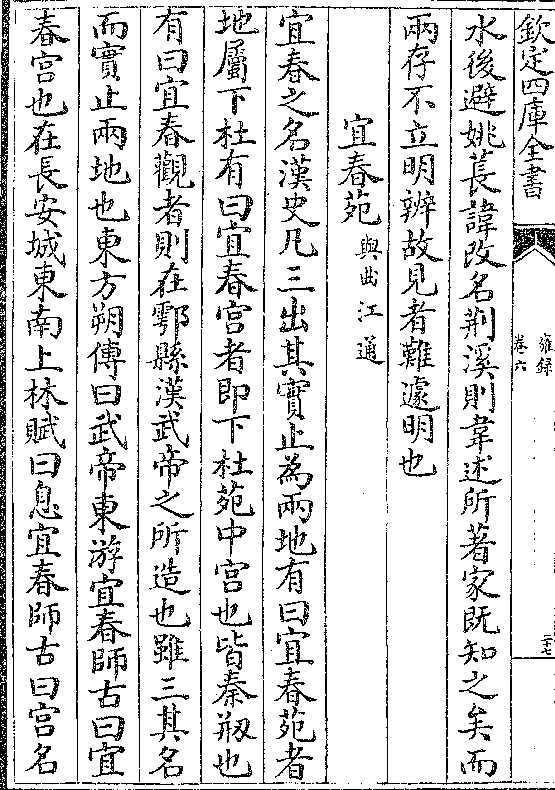 欽定四庫全書
雍録
卷六
二七
水後避姚萇諱改名荆溪則韋述所著家既知之矣而
兩存不立明辨故見者難遽明也
宜春苑與曲江通
宜春之名漢史凡三出其實止為兩地有曰宜春苑者
地屬下杜有曰宜春宫者即下杜苑中宫也皆秦剏也
有曰宜春觀者則在鄠縣漢武帝之所造也雖三其名
而實止兩地也東方朔傳曰武帝東游宜春師古曰宜
春宫也在長安城東南上林賦曰息宜春師古曰宫名